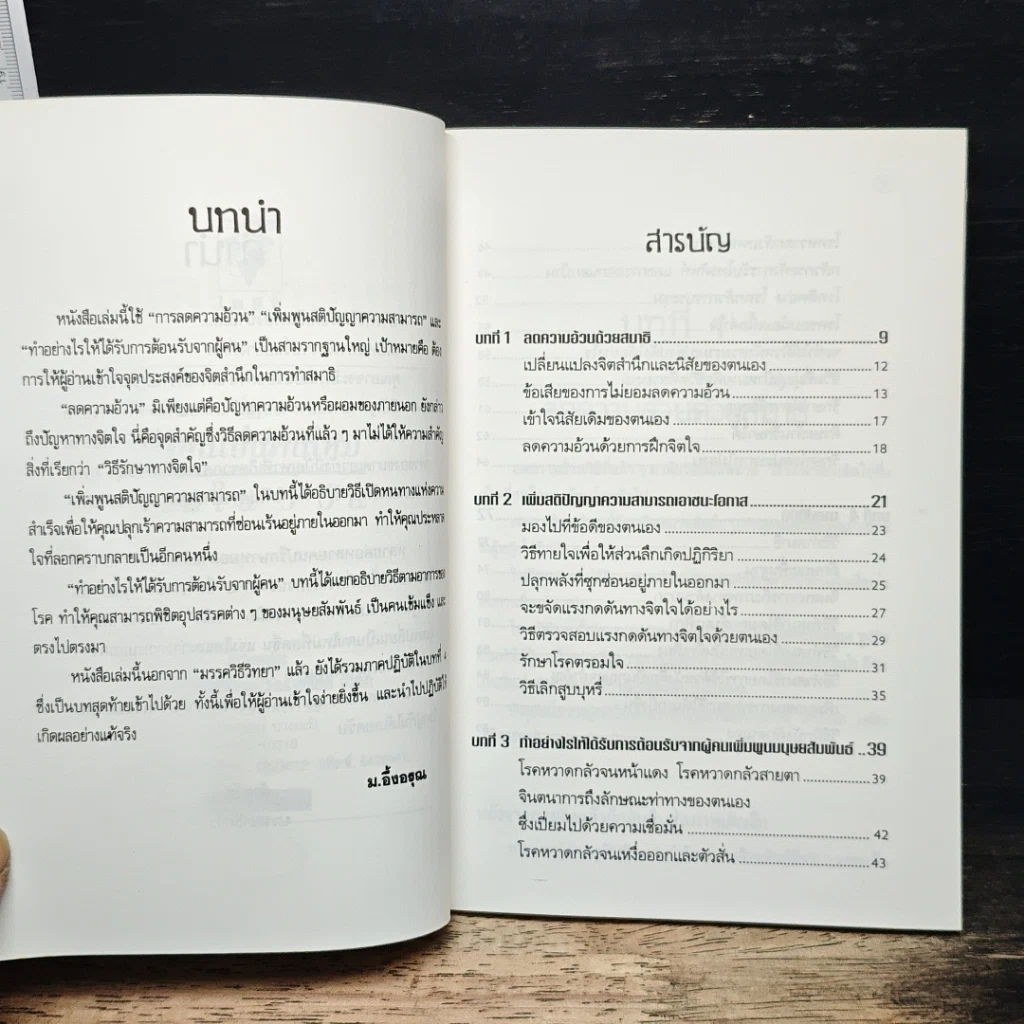 บทนำ
หนังสือเล่มนี้ใช้ "การลดความอ้วน" "เพิ่มพูนสติปัญญาความสามารถ" และ
"ทำอย่างไรให้ได้รับการต้อนรับจากผู้คน" เป็นสามรากฐานใหญ่ เป้าหมายคือ ต้อง
การให้ผู้อ่านเข้าใจจุดประสงค์ของจิตสำนึกในการทำสมาธิ
"ลดความอ้วน" มิเพียงแต่คือปัญหาความอ้วนหรือผอมของภายนอก ยังกล่าว
ถึงปัญหาทางจิตใจ นี่คือจุดสำคัญซึ่งวิธีลดความอ้วนที่แล้ว ๆ มาไม่ได้ให้ความสำคัญ
สิ่งที่เรียกว่า "วิธีรักษาทางจิตใจ"
"เพิ่มพูนสติปัญญาความสามารถ" ในบทนี้ได้อธิบายวิธีเปิดหนทางแห่งความ
สำเร็จเพื่อให้คุณปลุกเร้าความสามารถที่ซ่อนเร้นอยู่ภายในออกมา ทำให้คุณประหลาด
ใจที่ลอกคราบกลายเป็นอีกคนหนึ่ง
"ทำอย่างไรให้ได้รับการต้อนรับจากผู้คน" บทนี้ได้แยกอธิบายวิธีตามอาการของ
โรค ทำให้คุณสามารถพิชิตอุปสรรคต่าง ๆ ของมนุษยสัมพันธ์ เป็นคนเข้มแข็ง และ
ตรงไปตรงมา
หนังสือเล่มนี้นอกจาก "มรรควิธีวิทยา" แล้ว ยังได้รวมภาคปฏิบัติในบทที่ 4
ซึ่งเป็นบทสุดท้ายเข้าไปด้วย ทั้งนี้เพื่อให้ผู้อ่านเข้าใจง่ายยิ่งขึ้น และนำไปปฏิบัติให้
เกิดผลอย่างแท้จริง
ม.อึ้งอรุณ
สารบัญ
บทที่ 1 ลดความอ้วนด้วยสมาธิ 9
เปลี่ยนแปลงจิตสำนึกและนิสัยของตนเอง 12
ข้อเสียของการไม่ยอมลดความอ้วน 13
เข้าใจนิสัยเดิมของตนเอง 17
ลดความอ้วนด้วยการฝึกจิตใจ 18
บทที่ 2 เพิ่มสติปัญญาความสามารถเอาชนะโอกาส 21
มองไปที่ข้อดีของตนเอง 23
วิธีทายใจเพื่อให้ส่วนลึกเกิดปฏิกิริยา 24
ปลุกพลังที่ซุกซ่อนอยู่ภายในออกมา 25
จะขจัดแรงกดดันทางจิตใจได้อย่างไร 27
วิธีตรวจสอบแรงกดดันทางจิตใจด้วยตนเอง 29
รักษาโรคตรอมใจ 31
วิธีเลิกสูบบุหรี่ 35
บทที่ 3 ทำอย่างไรให้ได้รับการต้อนรับจากผู้คนเพิ่มพูนมนุษยสัมพันธ์ ..39
โรคหวาดกลัวจนหน้าแดง โรคหวาดกลัวสายตา 39
จินตนาการถึงลักษณะท่าทางของตนเอง
ซึ่งเปี่ยมไปด้วยความเชื่อมั่น 42
โรคหวาดกลัวจนเหงื่อออกและตัวสั่น 43